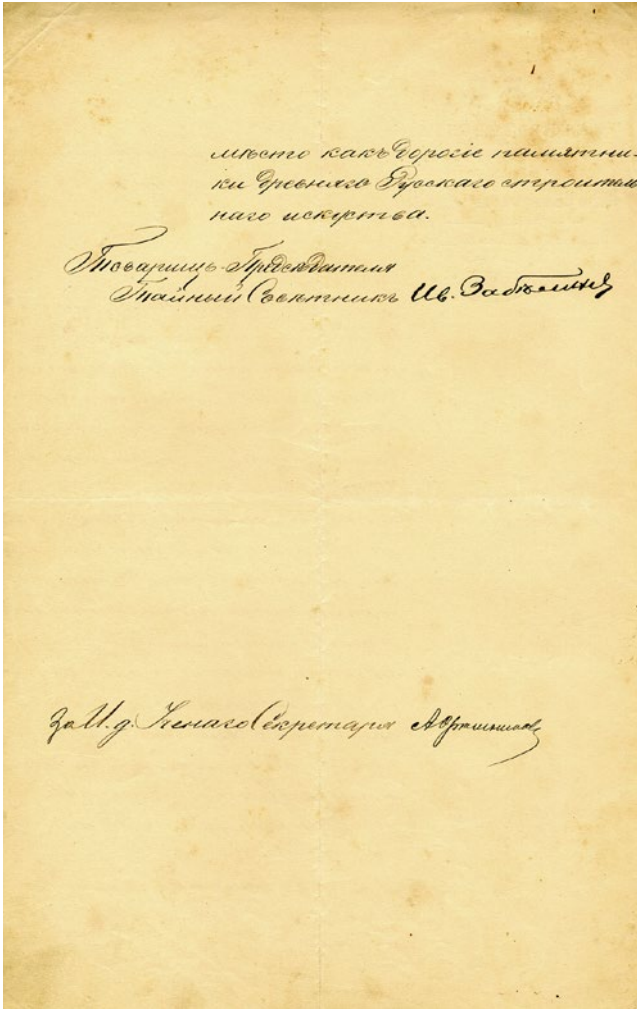 мѣсто какъ дорогіе памятни-
ки древняго Русскаго строитель
наго искуства.
Товарищъ Предсѣдателя
Тайный Совѣтникъ Ив. Забѣлинъ
За И. д. Ученаго Секретаря А Орѣшниковъ